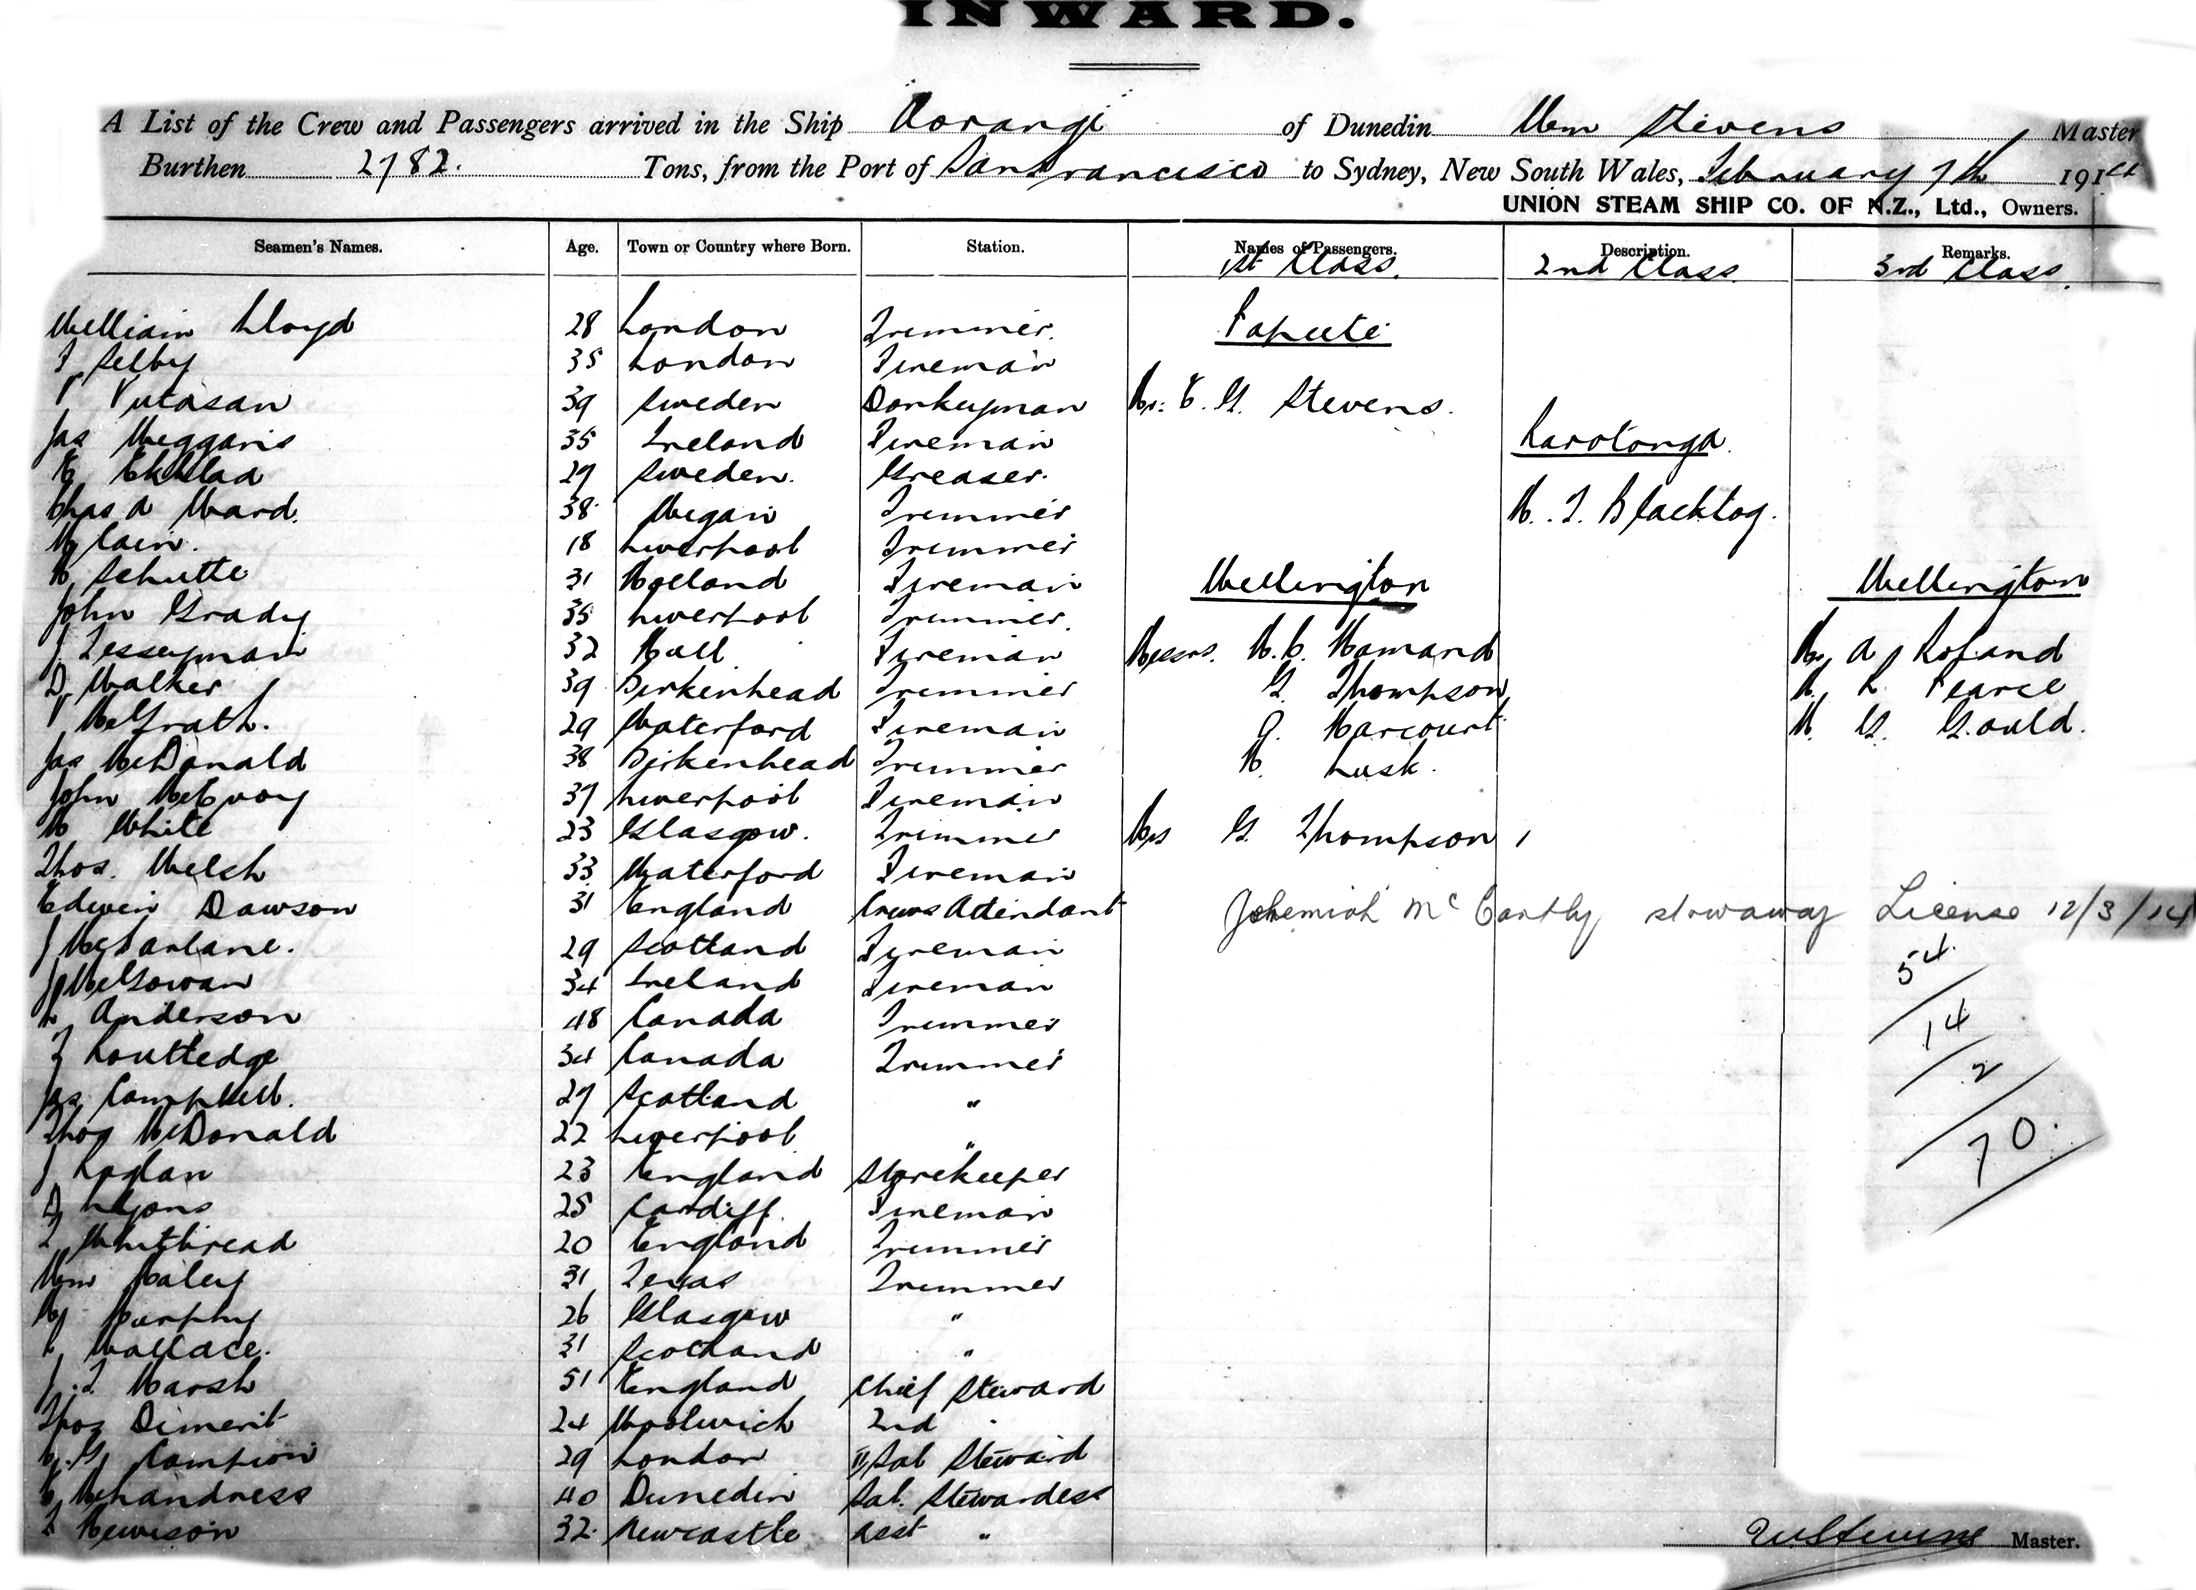 INWARD.
A List of the Crew and Passengers arrived in the Ship Aorangi of Dunedin Wm Stevens Master
Burthen 2782. Tons, from the Port of San Francisco to Sydney, New South Wales, February 7th 1914
UNION STEAM SHIP CO. OF N.Z., Ltd., Owners.
Seamen's Names. Age. Town or Country where Born. Station. Names of Passengers. Description. Remarks.
1st Class. 2nd Class. 3rd Class.
William Lloyd 28 London Trimmer. Papeete
F Selby 35 London Fireman
P 39 Sweden Donkeyman Mr. E. G. Stevens.
Jas Wiggans 35 Ireland Fireman Rarotonga.
E Ekblad 29 Sweden. Greaser.
Chas A Ward. 38 Wigan Trimmer M. T. Blacklog.
W Cain. 18 Liverpool Trimmer
H Schutte 31 Holland Fireman Wellington Wellington
John Grady 35 Liverpool Trimmer.
J Tesseyman 32 Hull Fireman Messrs. H. C. Hamand Mr. A J Rofand
D Walker 39 Birkenhead Trimmer G. Thompson, R. Pearce
P McGrath. 29 Waterford Fireman J. Harcourt G. Gould.
Jas McDonald 38 Birkenhead Trimmer H. Lusk.
John McEvoy 37 Liverpool Fireman
White 23 Glasgow. Trimmer Mrs G. Thompson,
Thos. Welsh 33 Waterford Fireman
Edwin Dawson 31 England Crews Attendant Jehemiah McCarthy stowaway License 12/3/14
J McFarlane. 29 Scotland Fireman 54.
J McGowan 34 Ireland Fireman
L Anderson 48 Canada Trimmer 14
F Routledge 34 Canada Trimmer 2
Jas Campbell. 27 Scotland "
Thos McDonald 22 Liverpool " 70.
J Loglan 23 England Storekeeper
D Lyons 25 Cardiff. Fireman
T Whitbread 20 England Trimmer
Wm Haley 31 Texas Trimmer
Murphy 26 Glasgow "
L Wallace. 31 Scotland "
J. T. Marsh 51 England Chief Steward
Thos Dimerit 24 Woolwich 2nd "
G. Campion 29 London Sal Steward
McLandress 40 Dunedin Sal. Stewardess
T Hewison 32. Newcastle Asst "
W Stevens Master.